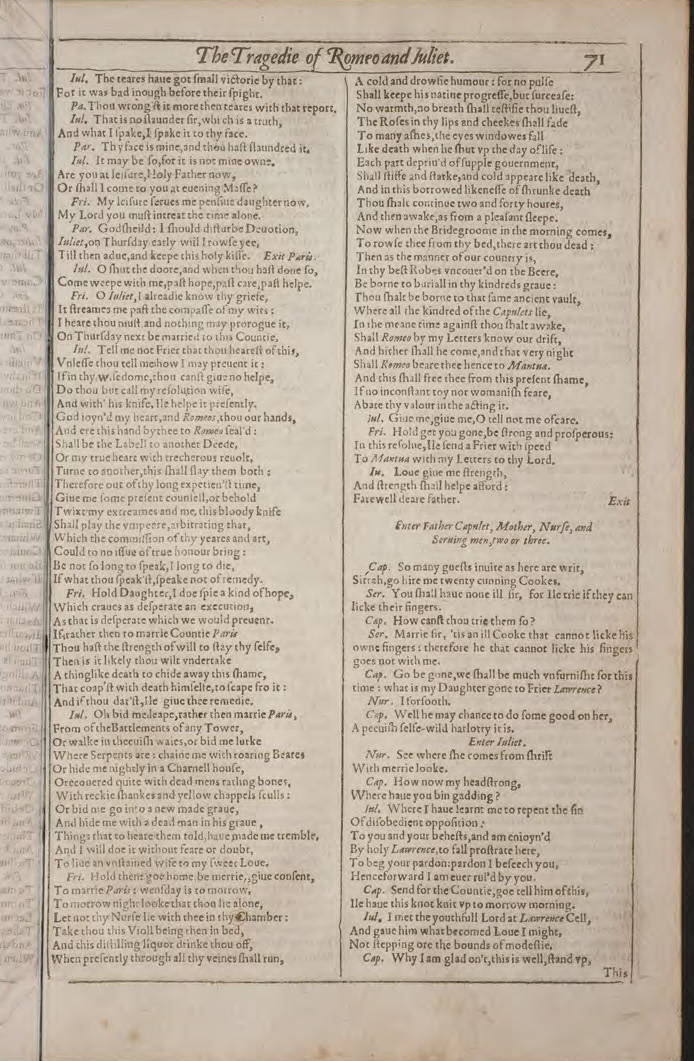 The Tragedie of Romeo and Juliet. 71
Iul. The teares haue got ſmall victorie by that:
For it was bad inough before their ſpight.
Pa. Thou wrong'ſt it more then teares with that report.
Iul. That is no ſlaunder ſir, which is a truth,
And what I ſpake, I ſpake it to thy face.
Par. Thy face is mine, and thou haſt ſlaundred it.
Iul. It may be ſo, for it is not mine owne.
Are you at leiſure, Holy Father now,
Or ſhall I come to you at euening Maſſe?
Fri. My leiſure ſerues me penſiue daughter now.
My Lord you muſt intreat the time alone.
Par. Godſheild: I ſhould diſturbe Deuotion,
Iuliet, on Thurſday early will I rowſe yee,
Till then adue, and keepe this holy kiſſe. Exit Paris.
Iul. O ſhut the doore, and when thou haſt done ſo,
Come weepe with me, paſt hope, paſt care, paſt helpe.
Fri. O Iuliet, I alreadie know thy griefe,
It ſtreames me paſt the compaſſe of my wits:
I heare thou muſt and nothing may prorogue it,
On Thurſday next be married to this Countie.
Iul. Tell me not Frier that thou heareſt of this,
Vnleſſe thou tell me how I may preuent it:
If in thy wiſedome, thou canſt giue no helpe,
Do thou but call my reſolution wiſe,
And with' his knife, Ile helpe it preſently.
God ioyn'd my heart, and Romeos, thou our hands,
And ere this hand by thee to Romeo ſeal'd:
Shall be the Labell to another Deede,
Or my true heart with trecherous reuolt,
Turne to another, this ſhall ſlay them both:
Therefore out of thy long expetien'ſt time,
Giue me ſome preſent counſell, or behold
Twixt my extreames and me, this bloody knife
Shall play the vmpeere, arbitrating that,
Which the commiſſion of thy yeares and art,
Could to no iſſue of true honour bring:
Be not ſo long to ſpeak, I long to die,
If what thou ſpeak'ſt, ſpeake not of remedy.
Fri. Hold Daughter, I doe ſpie a kind of hope,
Which craues as deſperate an execution,
As that is deſperate which we would preuent.
If, rather then to marrie Countie Paris
Thou haſt the ſtrength of will to ſtay thy ſelfe,
Then is it likely thou wilt vndertake
A thinglike death to chide away this ſhame,
That coap'ſt with death himſelfe, to ſcape fro it:
And if thou dar'ſt, Ile giue thee remedie.
Iul. Oh bid me leape, rather then marrie Paris,
From of the Battlements of any Tower,
Or walke in theeuiſh waies, or bid me lurke
Where Serpents are: chaine me with roaring Beares
Or hide me nightly in a Charnell houſe,
Orecouered quite with dead mens ratling bones,
With reckie ſhankes and yellow chappels ſculls:
Or bid me go into a new made graue,
And hide me with a dead man in his graue,
Things that to heare them told, haue made me tremble,
And I will doe it without feare or doubt,
To liue an vnſtained wife to my ſweet Loue.
Fri. Hold then: goe home, be merrie,, giue conſent,
To marrie Paris: wenſday is to morrow,
To morrow night looke that thou lie alone,
Let not thy Nurſe lie with thee in thy Chamber:
Take thou this Violl being then in bed,
And this diſtilling liquor drinke thou off,
When preſently through all thy veines ſhall run,
A cold and drowſie humour: for no pulſe
Shall keepe his natiue progreſſe, but ſurceaſe:
No warmth, no breath ſhall teſtifie thou liueſt,
The Roſes in thy lips and cheekes ſhall fade
To many aſhes, the eyes windowes fall
Like death when he ſhut vp the day of life:
Each part depriu'd of ſupple gouernment,
Shall ſtiffe and ſtarke, and cold appeare like death,
And in this borrowed likeneſſe of ſhrunke death
Thou ſhalt continue two and forty houres,
And then awake, as from a pleaſant ſleepe.
Now when the Bridegroome in the morning comes,
To rowſe thee from thy bed, there art thou dead:
Then as the manner of our country is,
In thy beſt Robes vncouer'd on the Beere,
Be borne to buriall in thy kindreds graue:
Thou ſhalt be borne to that ſame ancient vault,
Where all the kindred of the Capulets lie,
In the meane time againſt thou ſhalt awake,
Shall Romeo by my Letters know our drift,
And hither ſhall he come, and that very night
Shall Romeo beare thee hence to Mantua.
And this ſhall free thee from this preſent ſhame,
If no inconſtant toy nor womaniſh feare,
Abate thy valour in the acting it.
Iul. Giue me, giue me, O tell not me of care.
Fri. Hold get you gone, be ſtrong and proſperous:
In this reſolue, Ile ſend a Frier with ſpeed
To Mantua with my Letters to thy Lord.
Iu. Loue giue me ſtrength,
And ſtrength ſhall helpe afford:
Farewell deare father. Exit
Enter Father Capulet, Mother, Nurſe, and
Seruing men, two or three.
Cap. So many gueſts inuite as here are writ,
Sirrah, go hire me twenty cunning Cookes.
Ser. You ſhall haue none ill ſir, for Ile trie if they can
licke their fingers.
Cap. How canſt thou trie them ſo?
Ser. Marrie ſir, 'tis an ill Cooke that cannot licke his
owne fingers: therefore he that cannot licke his fingers
goes not with me.
Cap. Go be gone, we ſhall be much vnfurniſht for this
time: what is my Daughter gone to Frier Lawrence?
Nur. I forſooth.
Cap. Well he may chance to do ſome good on her,
A peeuiſh ſelfe-wild harlotry it is.
Enter Iuliet.
Nur. See where ſhe comes from ſhrift
With merrie looke.
Cap. How now my headſtrong,
Where haue you bin gadding?
Iul. Where I haue learnt me to repent the ſin
Of diſobedient oppoſition:
To you and your beheſts, and am enioyn'd
By holy Lawrence, to fall proſtrate here,
To beg your pardon: pardon I beſeech you,
Henceforward I am euer rul'd by you.
Cap. Send for the Countie, goe tell him of this,
Ile haue this knot knit vp to morrow morning.
Iul. I met the youthfull Lord at Lawrence Cell,
And gaue him what becomed Loue I might,
Not ſtepping ore the bounds of modeſtie.
Cap. Why I am glad on't, this is well, ſtand vp,
This